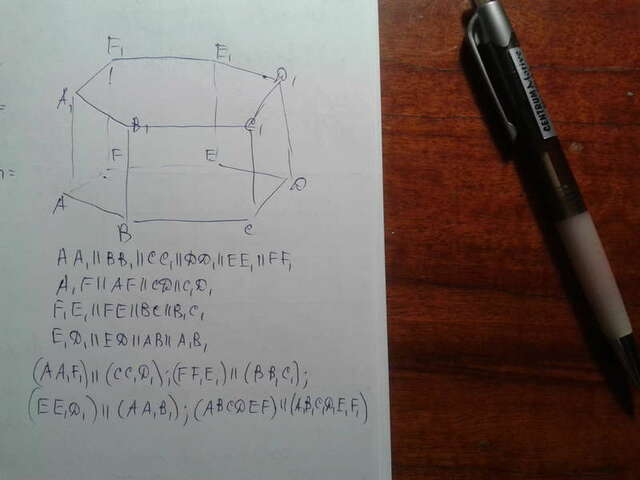 F₁ E₁
A₁ D₁
B₁ C₁
F E
A D
B C
AA₁ || BB₁ || CC₁ || DD₁ || EE₁ || FF₁
A₁F || AF || CD || C₁D₁
F₁E₁ || FE || BC || B₁C₁
E₁D₁ || ED || AB || A₁B₁
(AA₁F₁) || (CC₁D₁); (FF₁E₁) || (BB₁C₁);
(EE₁D₁) || (AA₁B₁); (ABCDEF) || (A₁B₁C₁D₁E₁F₁)
CENTRUM